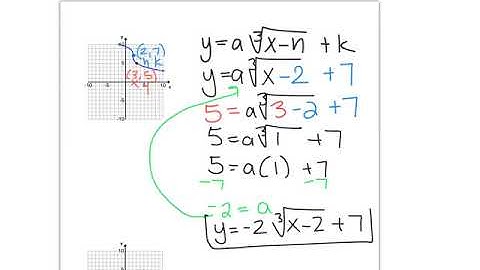 y
10
(2,7)
h k
(3,5)
x y
-10
10
x
-10
y = a∛x-h + k
y = a∛x-2 + 7
5 = a∛3-2 + 7
5 = a∛1 + 7
5 = a(1) + 7
-7 -7
-2 = a
y = -2∛x-2 + 7
y
10